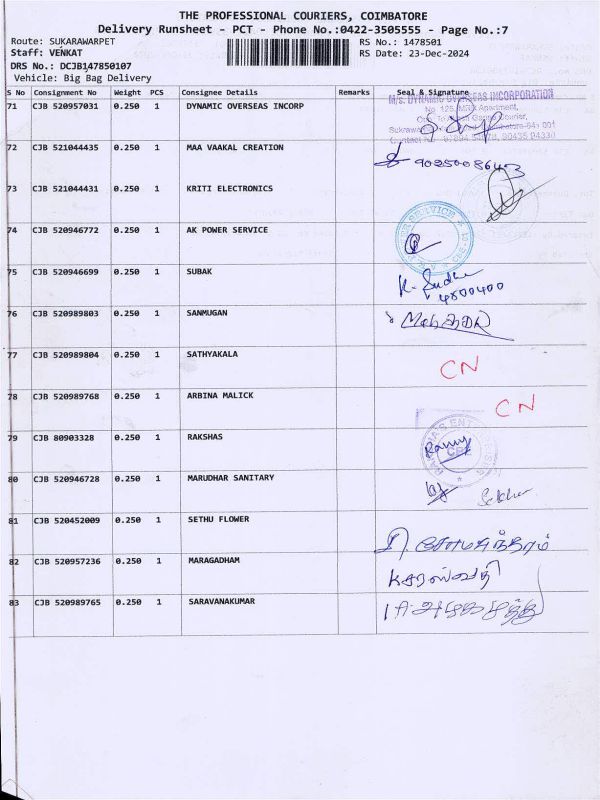 THE PROFESSIONAL COURIERS, COIMBATORE
Delivery Runsheet - PCT - Phone No.:0422-3505555 - Page No.:7
Route: SUKARAWARPET
Staff: VENKAT
DRS No.: DCJB147850107
Vehicle: Big Bag Delivery
RS No.: 1478501
RS Date: 23-Dec-2024
S No Consignment No Weight PCS Consignee Details Remarks Seal & Signature
71 CJB 520957031 0.250 1 DYNAMIC OVERSEAS INCORP
M/s. DYNAMIC OVERSEAS INCORPORATION
72 CJB 521044435 0.250 1 MAA VAAKAL CREATION
73 CJB 521044431 0.250 1 KRITI ELECTRONICS
74 CJB 520946772 0.250 1 AK POWER SERVICE
75 CJB 520946699 0.250 1 SUBAK
76 CJB 520989803 0.250 1 SANMUGAN
77 CJB 520989804 0.250 1 SATHYAKALA CN
78 CJB 520989768 0.250 1 ARBINA MALICK CN
79 CJB 80903328 0.250 1 RAKSHAS
80 CJB 520946728 0.250 1 MARUDHAR SANITARY
81 CJB 520452009 0.250 1 SETHU FLOWER
82 CJB 520957236 0.250 1 MARAGADHAM
83 CJB 520989765 0.250 1 SARAVANAKUMAR